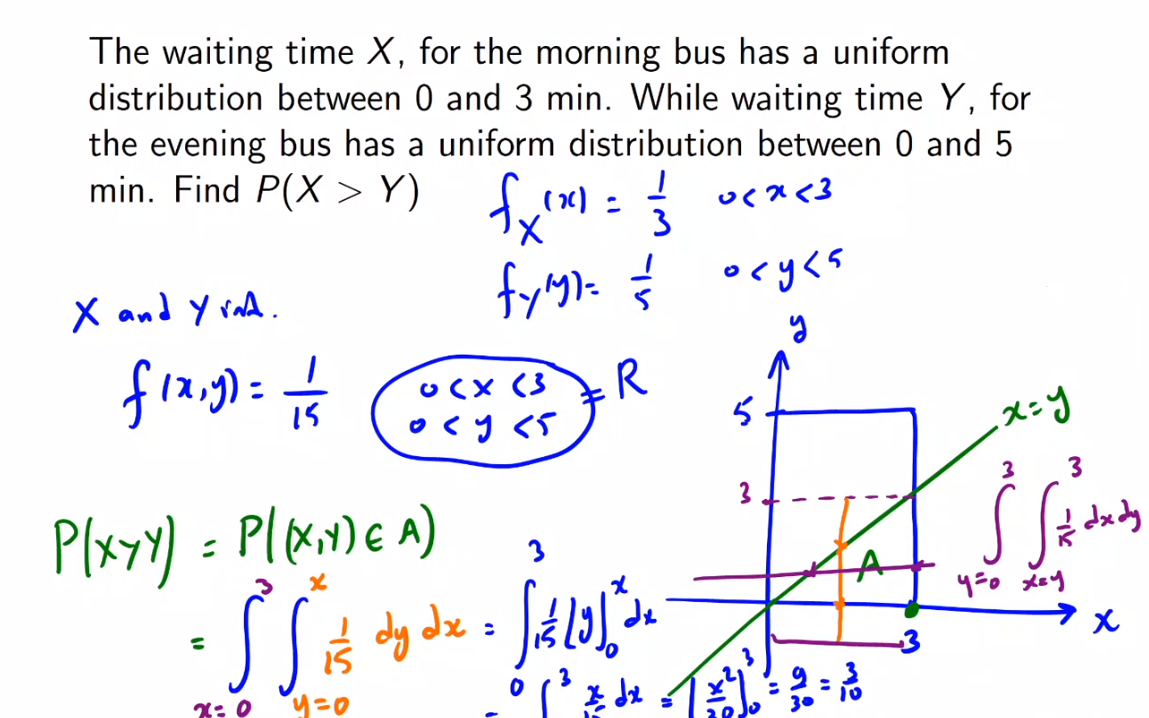 The waiting time X, for the morning bus has a uniform
distribution between 0 and 3 min. While waiting time Y, for
the evening bus has a uniform distribution between 0 and 5
min. Find P(X > Y)
f_X(x) = 1/3 0<x<3
f_Y(y) = 1/5 0<y<5
X and Y ind.
y
f(x,y) = 1/15 0<x<3 = R
0<y<5
5
x=y
3
P(X>Y) = P((X,Y) ∈ A)
A
∫_{y=0}^{3} ∫_{x=y}^{3} 1/15 dx dy
= ∫_{x=0}^{3} ∫_{y=0}^{x} 1/15 dy dx = ∫_0^3 1/15 [y]_0^x dx
x
3
= ∫^3 x/15 dx = [x²/30]_0^3 = 9/30 = 3/10